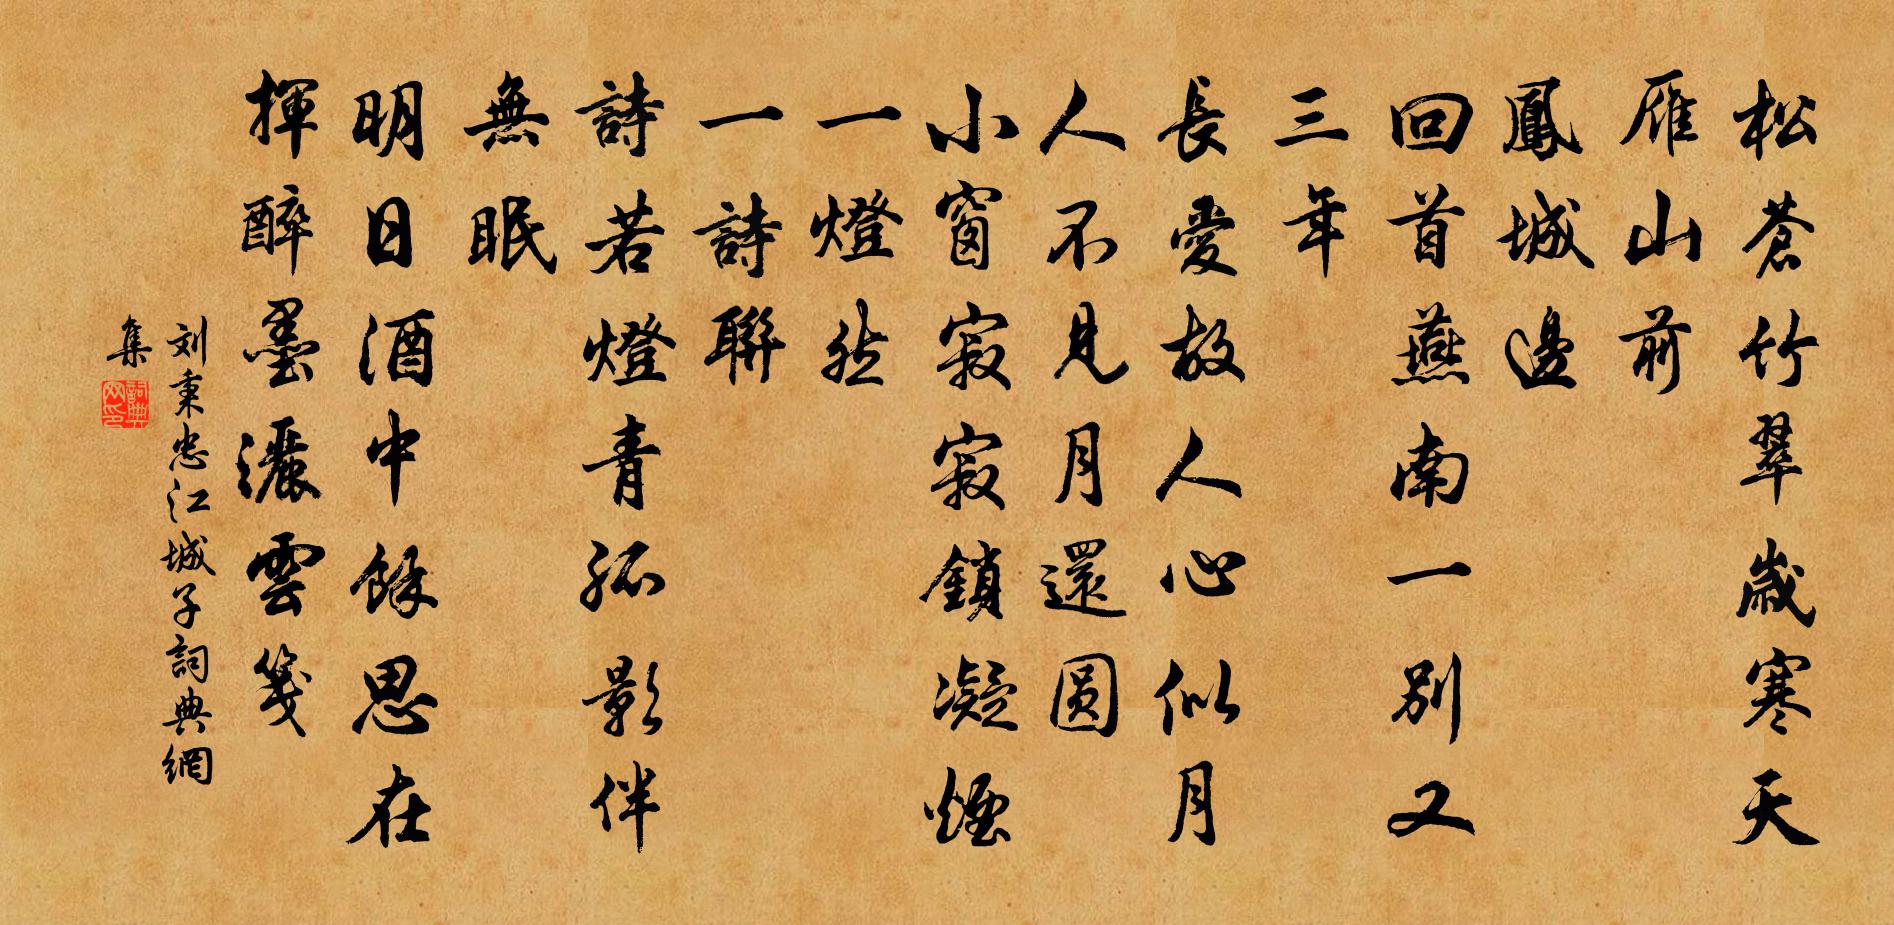 松蒼竹翠歲寒天
雁山前
鳳城邊
回首燕南一別又
三年
長愛故人心似月
人不見月還圓
小窗寂寂鎖凝煙
一燈然
一詩聯
詩若燈青孤影伴
無眠
明日酒中餘思在
揮醉墨灑雲箋
刘秉忠江城子詞典網
集
詞典网印